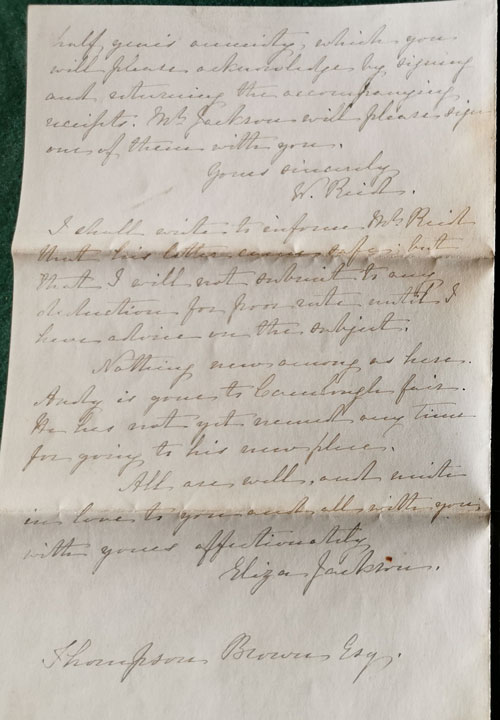 half year's annuity, which you
will please acknowledge by signing
and returning the accompanying
receipts. Mr Jackson will please sign
one of them with you.
Yours sincerely
W. Reid.
I shall write to inform Mr Reid
that his letter came safe; but
that I will not submit to any
deduction for poor rate until I
have advice on the subject.
Nothing new among us here.
Andy is gone to Camlough fair.
He has not yet named any time
for going to his new place.
All are well, and unite
in love to you and all with you
with yours affectionately
Eliza Jackson.
Thompson Brown Esq.